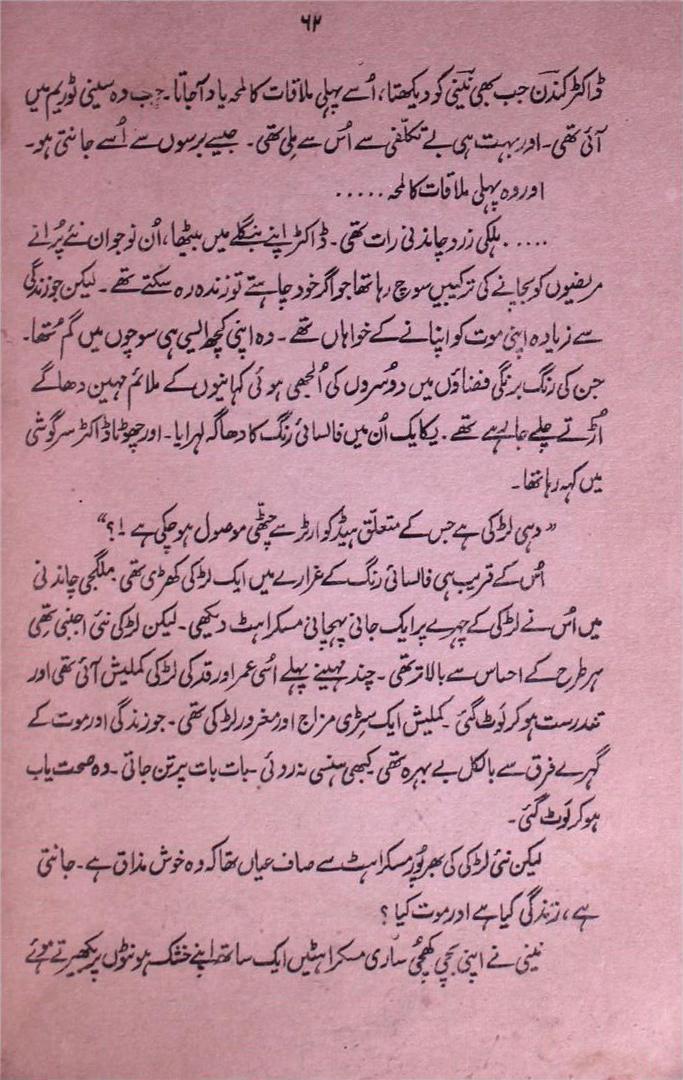 ۶۲
ڈاکٹر کندن جب بھی نینی کو دیکھتا، اُسے پہلی ملاقات کا لمحہ یاد آجاتا۔ جب وہ سینی ٹوریم میں
آئی تھی۔ اور بہت ہی بے تکلفی سے اُس سے ملی تھی۔ جیسے برسوں سے اُسے جانتی ہو۔
اور وہ پہلی ملاقات کا لمحہ.....
..... ہلکی زرد چاندنی رات تھی۔ ڈاکٹر اپنے بنگلے میں بیٹھا، اُن نوجوان نئے پُرانے
مریضوں کو بچانے کی ترکیبیں سوچ رہا تھا جو اگر خود چاہتے تو زندہ رہ سکتے تھے۔ لیکن جو زندگی
سے زیادہ اپنی موت کو اپنانے کے خواہاں تھے۔ وہ اپنی کچھ ایسی ہی سوچوں میں گم تھا۔
جن کی رنگ برنگی فضاؤں میں دوسروں کی اُلجھی ہوئی کہانیوں کے ملائم مہین دھاگے
اُڑتے چلے جا رہے تھے۔ یکایک اُن میں فالسائی رنگ کا دھاگہ لہرایا۔ اور چھوٹا ڈاکٹر سرگوشی
میں کہہ رہا تھا۔
"وہی لڑکی ہے جس کے متعلّق ہیڈ کوارٹر سے چٹھی موصول ہو چکی ہے !؟"
اُس کے قریب ہی فالسائی رنگ کے غرارے میں ایک لڑکی کھڑی تھی۔ ملگجی چاندنی
میں اُس نے لڑکی کے چہرے پر ایک جانی پہچانی مسکراہٹ دیکھی۔ لیکن لڑکی نئی اجنبی تھی
ہر طرح کے احساس سے بالاتر تھی۔ چند مہینے پہلے اُسی عمر اور قد کی لڑکی کملیش آئی تھی اور
تندرست ہو کر لَوٹ گئی۔ کملیش ایک سڑی مزاج اور مغرور لڑکی تھی۔ جو زندگی اور موت کے
گہرے فرق سے بالکل بے بہرہ تھی کبھی ہنسی نہ روئی۔ بات بات پر تن جاتی۔ وہ صحت یاب
ہو کر لَوٹ گئی۔
لیکن نئی لڑکی کی بھرپُور مسکراہٹ سے صاف عیاں تھا کہ وہ خوش مذاق ہے۔ جانتی
ہے، زندگی کیا ہے اور موت کیا ؟
نینی نے اپنی بچی کھچی ساری مسکراہٹیں ایک ساتھ اپنے خشک ہونٹوں پر بکھیرتے ہوئے